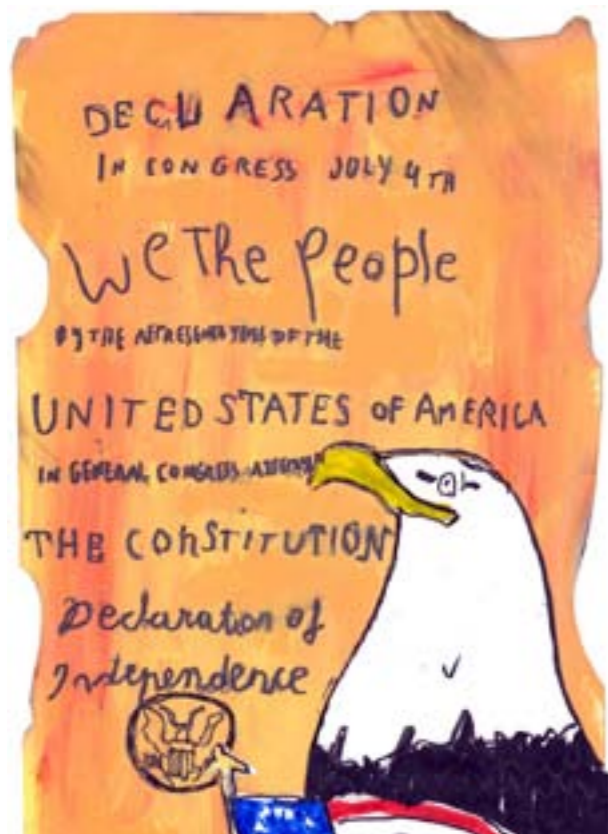 DECLARATION
IN CONGRESS JULY 4TH
We The People
BY THE REPRESENTATIVES OF THE
UNITED STATES OF AMERICA
IN GENERAL CONGRESS
THE CONSTITUTION
Declaration of
Independence